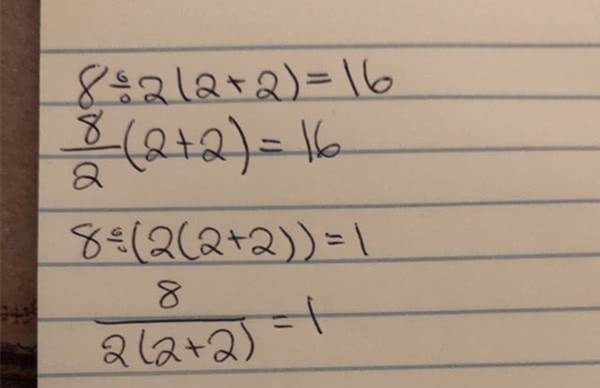 8÷2(2+2)=16
8/2(2+2)=16
8÷(2(2+2))=1
8/2(2+2)=1